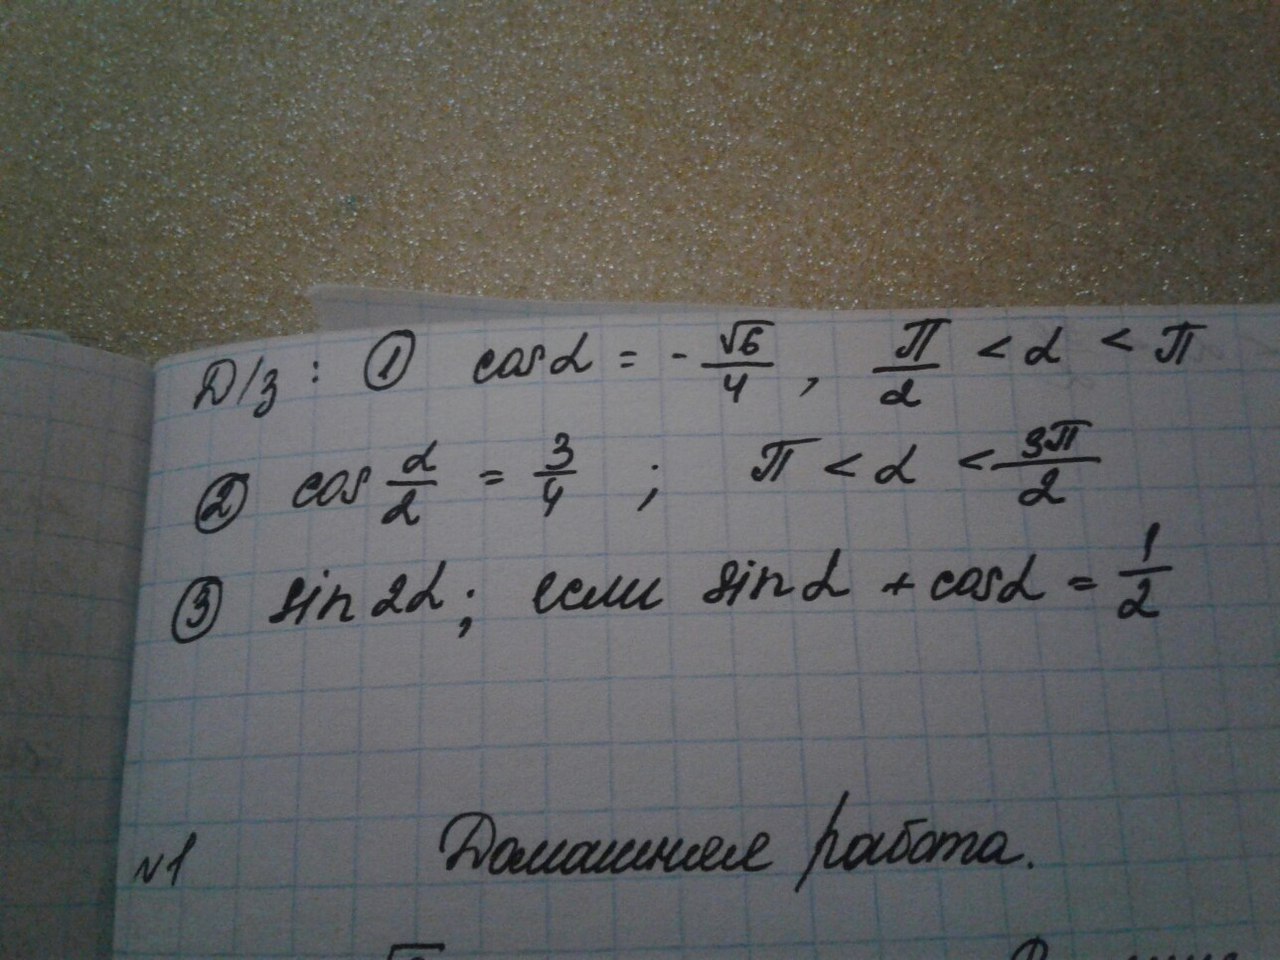 Д/з: ① cos α = - √6/4, π/2 < α < π
② cos α/2 = 3/4 ; π < α < 3π/2
③ sin 2α; если sin α + cos α = 1/2
Домашняя работа.
№1